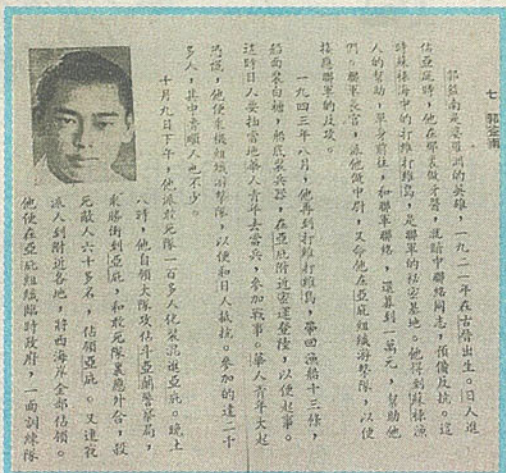 七 郭益南
郭益南是婆羅洲的英雄,一九二一年在古晉出生。日人進
佔亞庇時,他在那裏做牙醫,就暗中聯絡同志,預備反抗。這
時蘇祿海中的打維打維島,是聯軍的秘密基地。他得到蘇祿漁
人的幫助,單身前往,和聯軍聯絡,還募到一萬元,幫助他
們。聯軍長官,派他做中尉,又命他在亞庇組織游擊隊,以便
接應聯軍的反攻。
一九四三年八月,他再到打維打維島,帶回漁船十三條,
船面裝白糖,船底裝兵器,在亞庇附近密運登陸,以便起事。
這時日人要抽當地華人青年去當兵,參加戰事。華人青年大起
恐慌,他便乘機組織游擊隊,以便和日人抵抗。參加的達二千
多人,其中人也不少。
十月九日下午,他派敢死隊一百多人化裝混進亞庇。晚上
八時,他自領大隊攻佔斗亞蘭警察局,
乘勝衝到亞庇,和敢死隊裏應外合,殺
死敵人六十多名,佔領亞庇。又連夜
派人到附近各地,將西海岸全部佔領。
他便在亞庇組織臨時政府,一面訓練隊